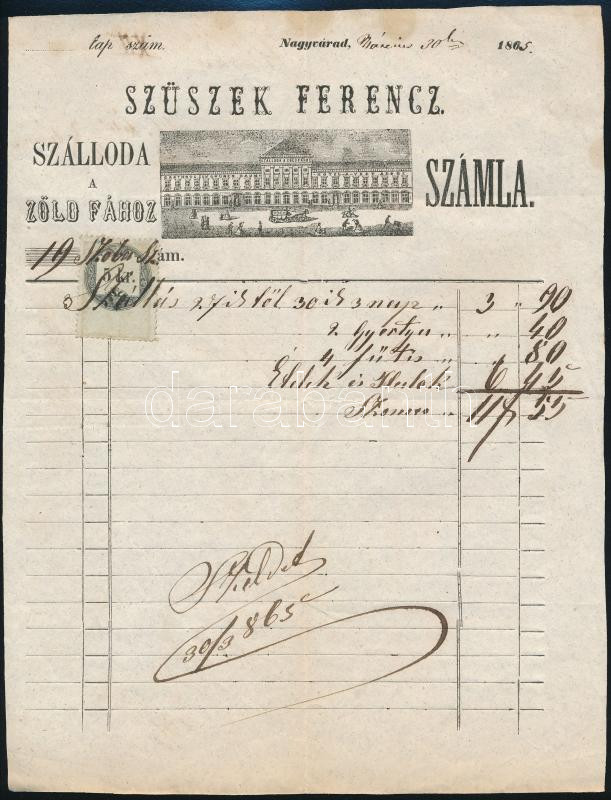 Lap szám.
Nagyvárad, Március 30 1865.
SZÜSZEK FERENCZ.
SZÁLLODA
A
ZÖLD FÁHOZ
SZÁMLA.
19 Szoba Szám.
5 kr.
3 Szállás 27ik től 30ik 3 nap „ 3 „ 90
2 Gyertya „ „ 40
4 fűtés „ „ 80
Ételek és Italok 6 45
11 55
30/3 865
darabanth